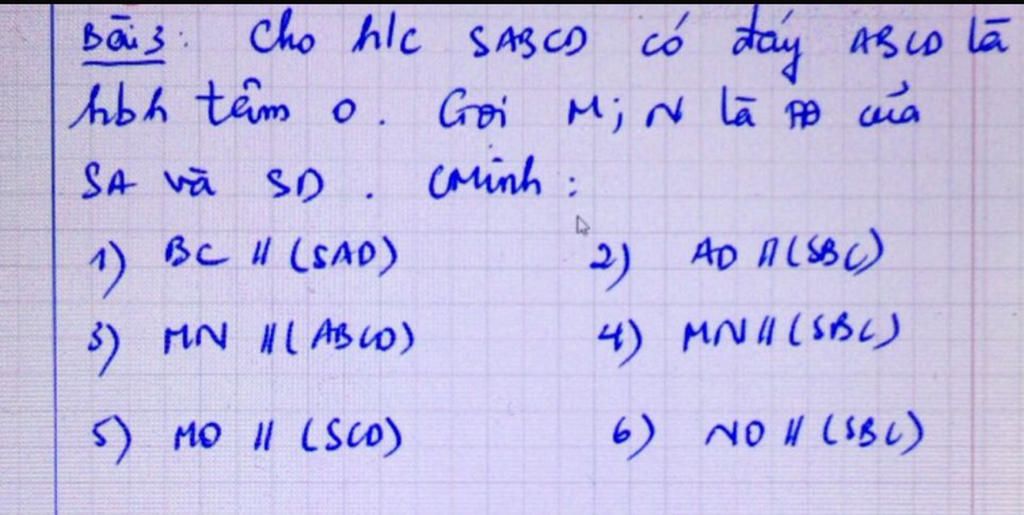 Bài 3: Cho h/c SABCD có đáy ABCD là
hbh tâm O. Gọi M; N là của
SA và SD. CMinh:
1) BC // (SAD) 2) AD // (SBC)
3) MN // (ABCD) 4) MN // (SBC)
5) MO // (SCD) 6) NO // (SBC)